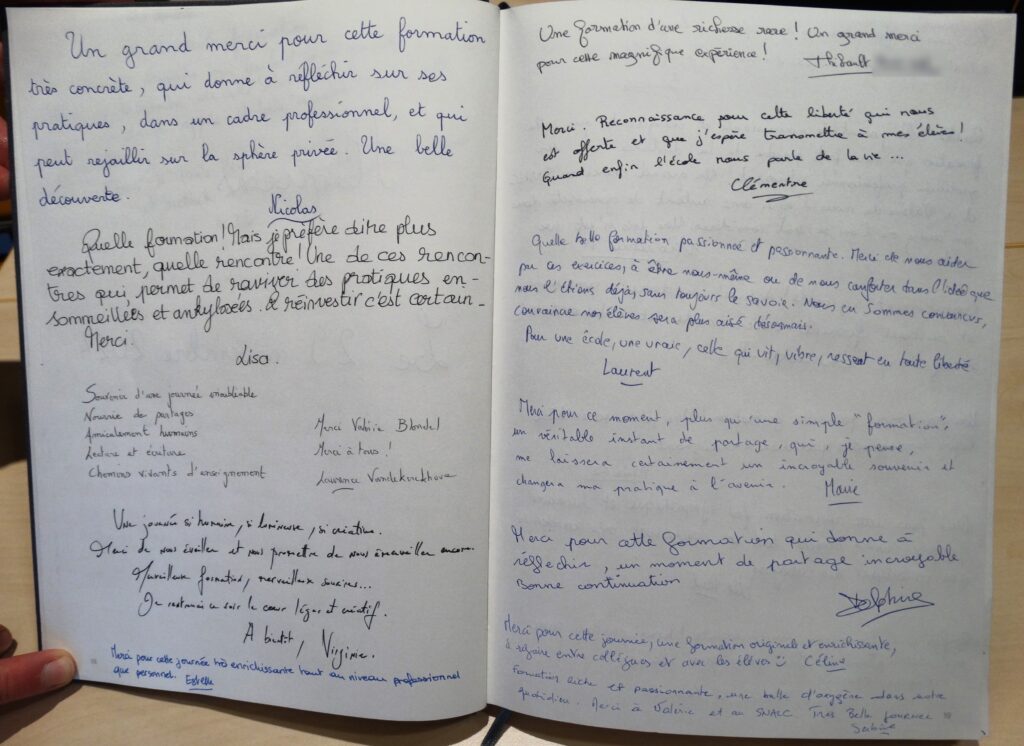 Un grand merci pour cette formation
très concrète, qui donne à réfléchir sur ses
pratiques, dans un cadre professionnel, et qui
peut rejaillir sur la sphère privée. Une belle
découverte.
Nicolas
Quelle formation! Mais je préfère dire plus
exactement, quelle rencontre! Une de ces rencon-
tres qui permet de raviver des pratiques en-
sommeillées et ankylosées. A réinvestir c'est certain.
Merci.
Lisa.
Souvenir d'une journée inoubliable
Nourrie de partages
Amicalement humains
Lecture et écriture
Chemins vivants d'enseignement
Merci Valérie Blondel
Merci à tous !
Laurence Vandekerckhove
Une journée si humaine, si lumineuse, si créative.
Merci de nous éveiller et nous promettre de nous émerveiller encore.
Merveilleuse formation, merveilleux sourires...
Je rentrerai ce soir le cœur léger et créatif.
A bientôt, Virginie.
Merci pour cette journée très enrichissante tant au niveau professionnel
que personnel. Estelle
Une formation d'une richesse rare ! Un grand merci
pour cette magnifique expérience !
Thibault
Merci. Reconnaissance pour cette liberté qui nous
est offerte et que j'espère transmettre à mes élèves !
Quand enfin l'école nous parle de la vie...
Clémentine
Quelle belle formation passionnée et passionnante. Merci de nous aider
par ces exercices, à être nous-même ou de nous conforter dans l'idée que
nous l'étions déjà, sans toujours le savoir. Nous en sommes convaincus,
convaincre nos élèves sera plus aisé désormais.
Pour une école, une vraie, celle qui vit, vibre, ressent en toute liberté
Laurent
Merci pour ce moment, plus qu'une simple "formation",
un véritable instant de partage, qui, je pense,
me laissera certainement un incroyable souvenir et
changera ma pratique à l'avenir. Marie
Merci pour cette formation qui donne à
réflechir, un moment de partage incroyable
Bonne continuation
Delphine
Merci pour cette journée, une formation originel et enrichissante,
à refaire entre collègues et avec les élèves Céline
Formation riche et passionnante, une bulle d'oxygène dans notre
quotidien. Merci à Valérie et au SNALC. Très Belle Journée
Sabine